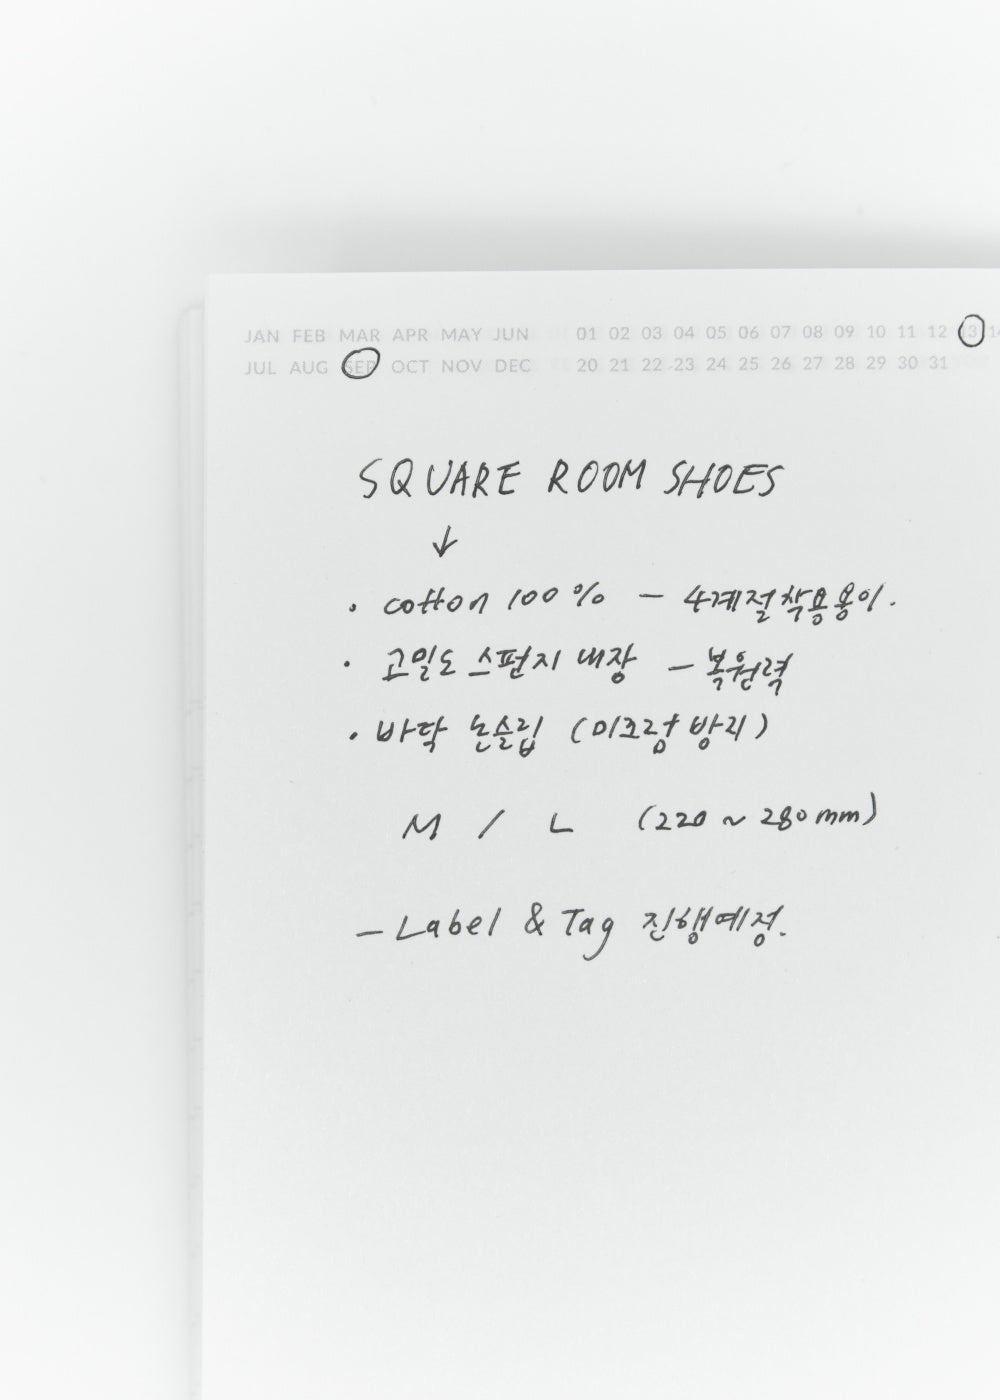 JAN FEB MAR APR MAY JUN 01 02 03 04 05 06 07 08 09 10 11 12 13 14
JUL AUG SEP OCT NOV DEC 20 21 22 23 24 25 26 27 28 29 30 31
SQUARE ROOM SHOES
↓
· cotton 100% - 4계절착용용이.
· 고밀도 스펀지 내장 - 복원력
· 바닥 논슬립 (미끄럼 방지)
M / L (220 ~ 280mm)
- Label & Tag 진행예정.